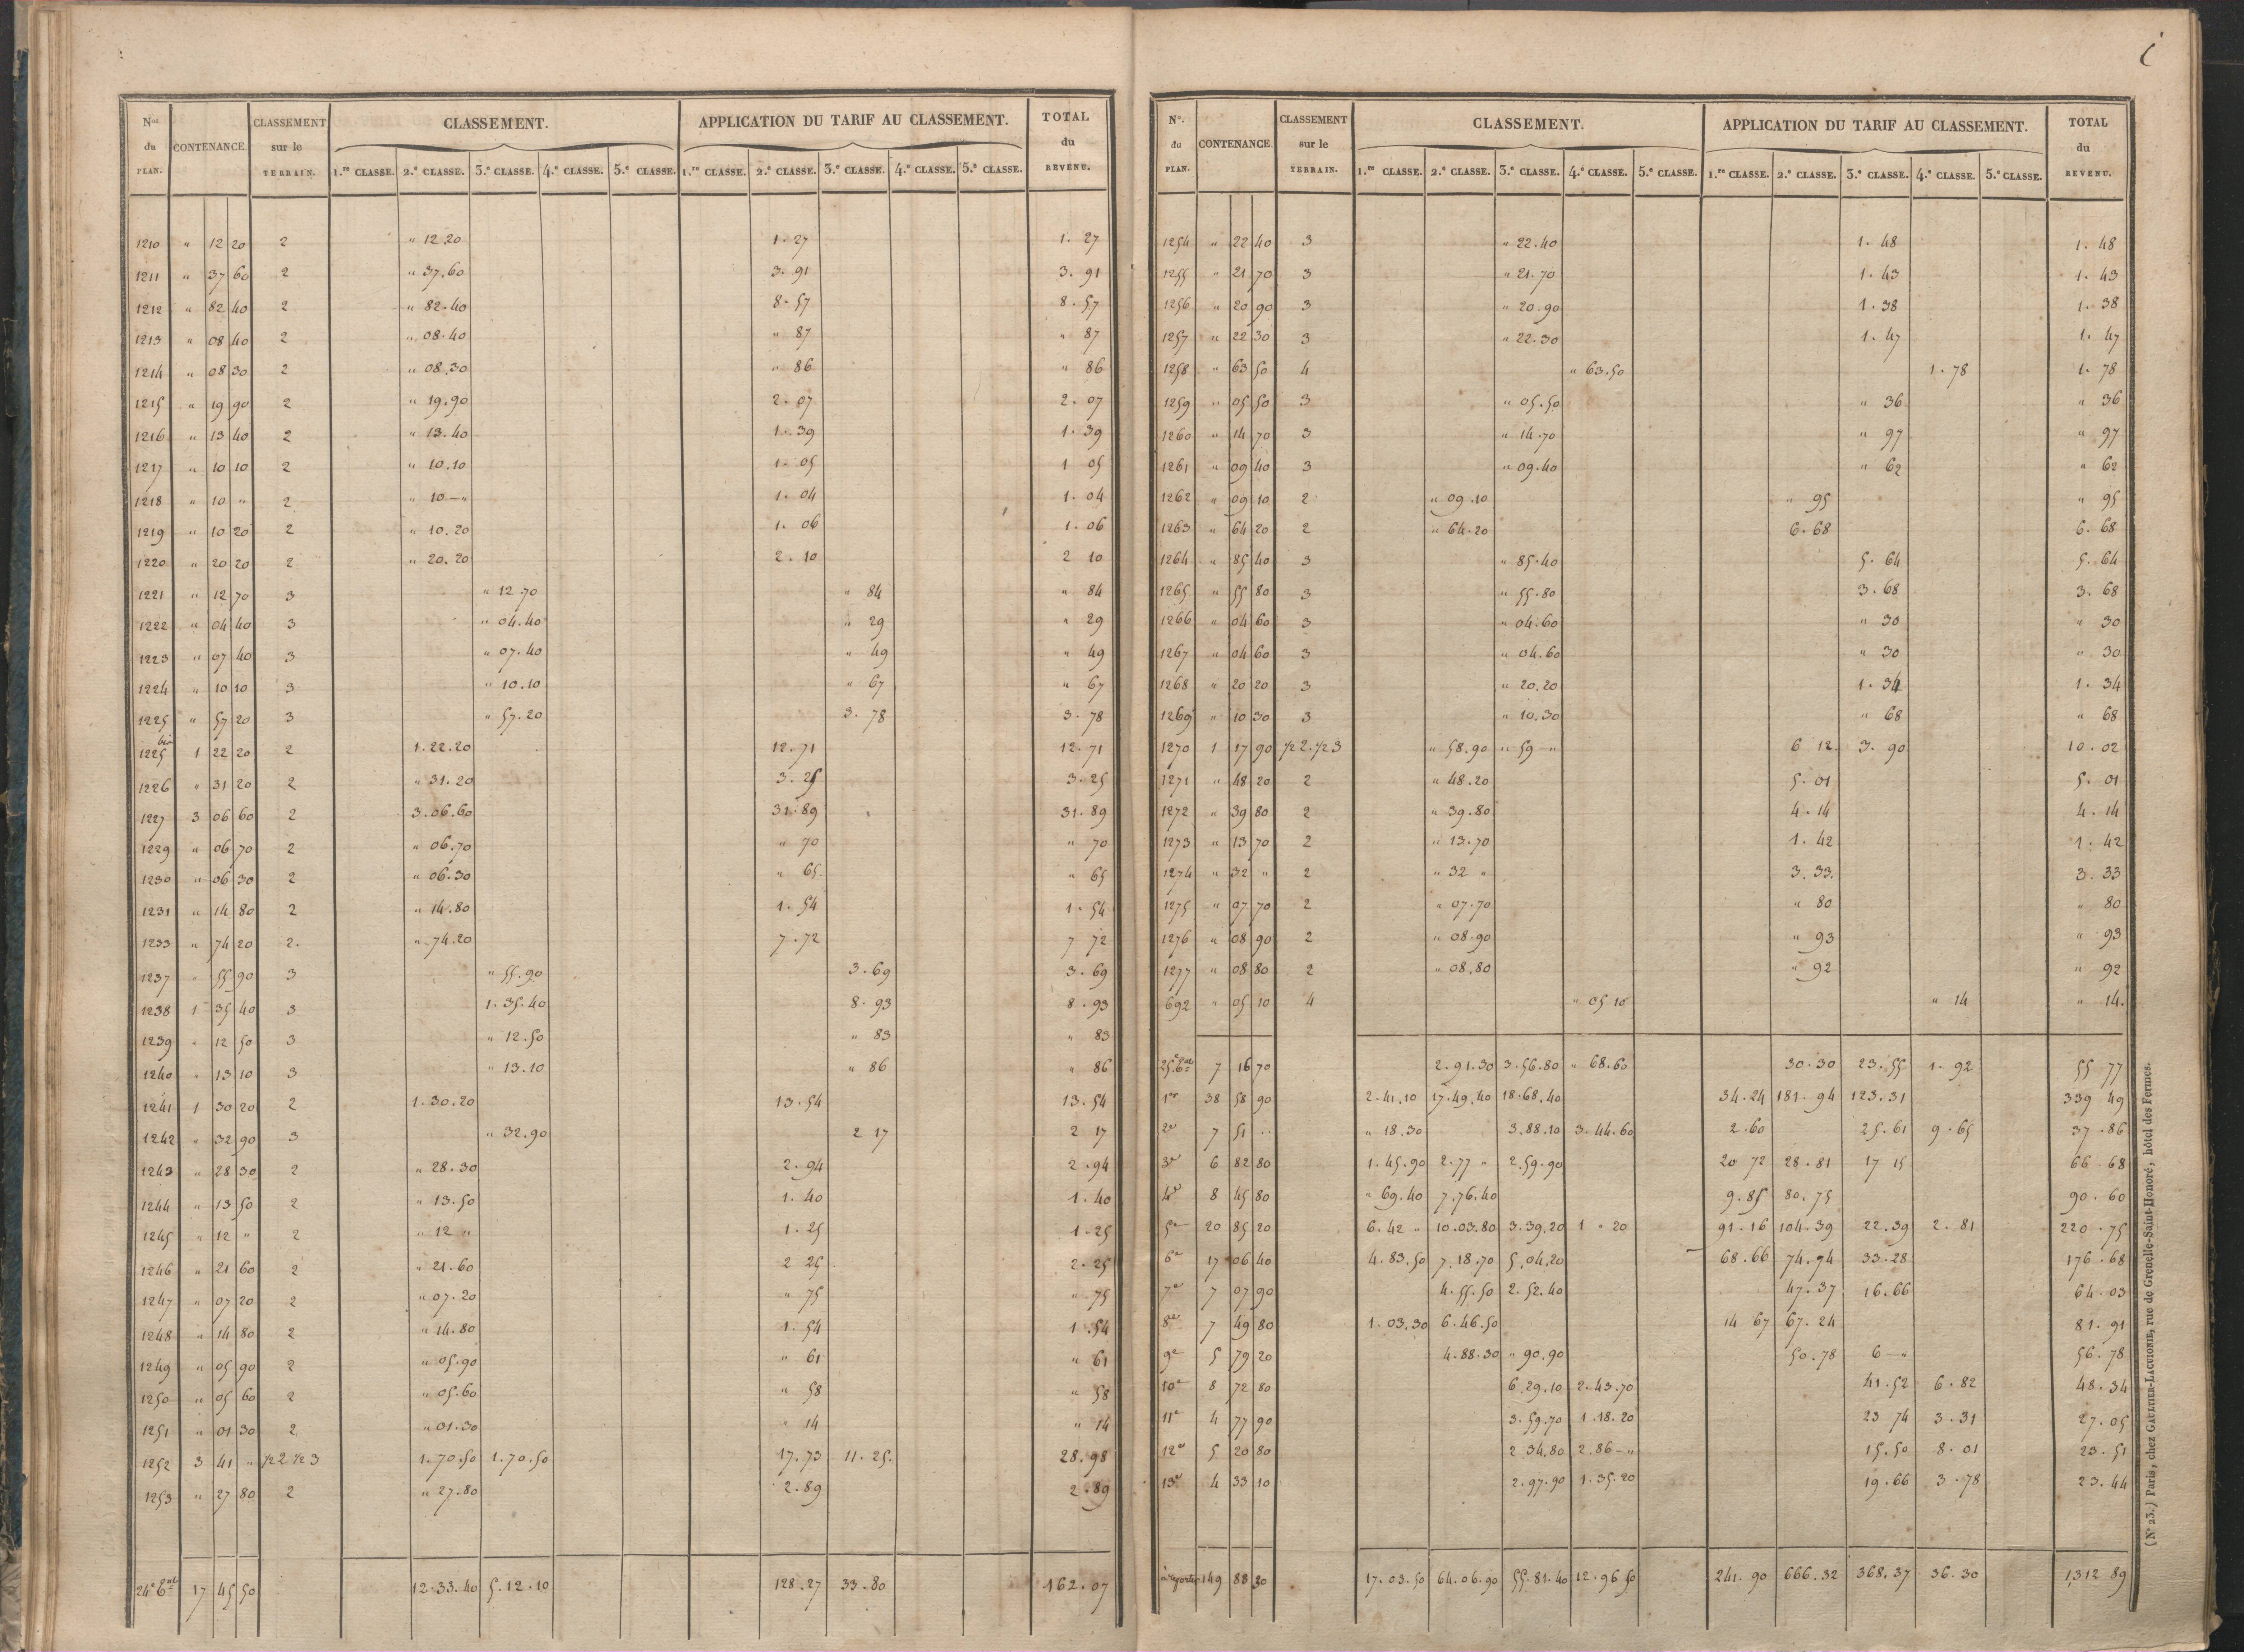 Nos du PLAN. CONTENANCE. CLASSEMENT sur le TERRAIN. CLASSEMENT. APPLICATION DU TARIF AU CLASSEMENT. TOTAL du REVENU.
1.re CLASSE. 2.e CLASSE. 3.e CLASSE. 4.e CLASSE. 5.e CLASSE. 1.re CLASSE. 2.e CLASSE. 3.e CLASSE. 4.e CLASSE. 5.e CLASSE.
1210 " 12 20 2 " 12 20 1. 27 1. 27
1211 " 37 60 2 " 37.60 3. 91 3. 91
1212 " 82 40 2 " 82.40 8. 57 8. 57
1213 " 08 40 2 " 08.40 " 87 " 87
1214 " 08 30 2 " 08.30 " 86 " 86
1215 " 19 90 2 " 19.90 2. 07 2. 07
1216 " 13 40 2 " 13.40 1. 39 1. 39
1217 " 10 10 2 " 10.10 1. 05 1 05
1218 " 10 " 2 " 10 — " 1. 04 1. 04
1219 " 10 20 2 " 10.20 1. 06 1. 06
1220 " 20 20 2 " 20.20 2. 10 2 10
1221 " 12 70 3 " 12.70 " 84 " 84
1222 " 04 40 3 " 04.40 " 29 " 29
1223 " 07 40 3 " 07.40 " 49 " 49
1224 " 10 10 3 " 10.10 " 67 " 67
1225 " 57 20 3 " 57.20 3. 78 3. 78
1225 bis 1 22 20 2 1.22.20 12.71 12.71
1226 " 31 20 2 " 31.20 3. 25 3. 25
1227 3 06 60 2 3.06.60 31.89 31.89
1229 " 06 70 2 " 06.70 " 70 " 70
1230 " 06 30 2 " 06.30 " 65 " 65
1231 " 14 80 2 " 14.80 1. 54 1. 54
1233 " 74 20 2. " 74.20 7.72 7 72
1237 " 55 90 3 " 55.90 3.69 3.69
1238 1 35 40 3 1.35.40 8.93 8.93
1239 " 12 50 3 " 12.50 " 83 " 83
1240 " 13 10 3 " 13.10 " 86 " 86
1241 1 30 20 2 1.30.20 13.54 13.54
1242 " 32 90 3 " 32.90 2 17 2 17
1243 " 28 30 2 " 28.30 2.94 2.94
1244 " 13 50 2 " 13.50 1. 40 1.40
1245 " 12 " 2 " 12 " 1. 25 1.25
1246 " 21 60 2 " 21.60 2 25 2.25
1247 " 07 20 2 " 07.20 " 75 " 75
1248 " 14 80 2 " 14.80 1. 54 1.54
1249 " 05 90 2 " 05.90 " 61 " 61
1250 " 05 60 2 " 05.60 " 58 " 58
1251 " 01 30 2 " 01.30 " 14 " 14
1252 3 41 " 1/2 2. 1/2 3 1.70.50 1.70.50 17.73 11.25. 28.98
1253 " 27 80 2 " 27.80 2.89 2.89
24e 6nt 17 45 50 12.33.40 5.12.10 128.27 33.80 162.07
i
No. du PLAN. CONTENANCE. CLASSEMENT sur le TERRAIN. CLASSEMENT. APPLICATION DU TARIF AU CLASSEMENT. TOTAL du REVENU.
1.re CLASSE. 2.e CLASSE. 3.e CLASSE. 4.e CLASSE. 5.e CLASSE. 1.re CLASSE. 2.e CLASSE. 3.e CLASSE. 4.e CLASSE. 5.e CLASSE.
1254 " 22 40 3 " 22.40 1. 48 1. 48
1255 " 21 70 3 " 21.70 1. 43 1. 43
1256 " 20 90 3 " 20.90 1. 38 1. 38
1257 " 22 30 3 " 22.30 1. 47 1. 47
1258 " 63 50 4 " 63.50 1. 78 1. 78
1259 " 05 50 3 " 05.50 " 36 " 36
1260 " 14 70 3 " 14.70 " 97 " 97
1261 " 09 40 3 " 09.40 " 62 " 62
1262 " 09 10 2 " 09.10 " 95 " 95
1263 " 64 20 2 " 64.20 6.68 6. 68
1264 " 85 40 3 " 85.40 5. 64 5. 64
1265 " 55 80 3 " 55.80 3.68 3. 68
1266 " 04 60 3 " 04.60 " 30 " 30
1267 " 04 60 3 " 04.60 " 30 " 30
1268 " 20 20 3 " 20.20 1. 34 1. 34
1269 " 10 30 3 " 10.30 " 68 " 68
1270 1 17 90 1/2 2. 1/2 3 " 58.90 " 59 — " 6 12. 3. 90 10.02
1271 " 48 20 2 " 48.20 5. 01 5. 01
1272 " 39 80 2 " 39.80 4.14 4.14
1273 " 13 70 2 " 13.70 1. 42 1. 42
1274 " 32 " 2 " 32 " 3. 33. 3. 33
1275 " 07 70 2 " 07.70 " 80 " 80
1276 " 08 90 2 " 08.90 " 93 " 93
1277 " 08 80 2 " 08.80 " 92 " 92
692 " 05 10 4 " 05 10 " 14 " 14.
25e 6nt 7 16 70 2.91.30 3.56.80 " 68.60 30.30 23.55 1. 92 55 77
1er 38 58 90 2.41.10 17.49.40 18.68.40 34.24 181.94 123.31 339 49
2e 7 51 .. " 18.30 3.88.10 3.44.60 2.60 25.61 9.65 37.86
3e 6 82 80 1.45.90 2.77 " 2.59.90 20 72 28.81 17 15 66.68
4e 8 45 80 " 69.40 7.76.40 9.85 80.75 90.60
5e 20 85 20 6.42 " 10.03.80 3.39.20 1 " 20 91.16 104.39 22.39 2.81 220.75
6e 17 06 40 4.83.50 7.18.70 5.04.20 68.66 74.94 33.28 176.68
7e 7 07 90 4.55.50 2.52.40 47.37 16.66 64.03
8e 7 49 80 1.03.30 6.46.50 14 67 67.24 81.91
9e 5 79 20 4.88.30 " 90.90 50.78 6 — " 56.78
10e 8 72 80 6.29.10 2.43.70 41.52 6.82 48.34
11e 4 77 90 3.59.70 1.18.20 23 74 3.31 27.05
12e 5 20 80 2 34.80 2.86 — " 15.50 8.01 23.51
13e 4 33 10 2.97.90 1.35.20 19.66 3.78 23.44
à reporter 149 88 30 17.03.50 64.06.90 55.81.40 12.96 50 241.90 666.32 368.37 36.30 1312 89
(No 23.) Paris, chez GAULTIER-LAGUIONIE, rue de Grenelle-Saint-Honoré, hôtel des Fermes.